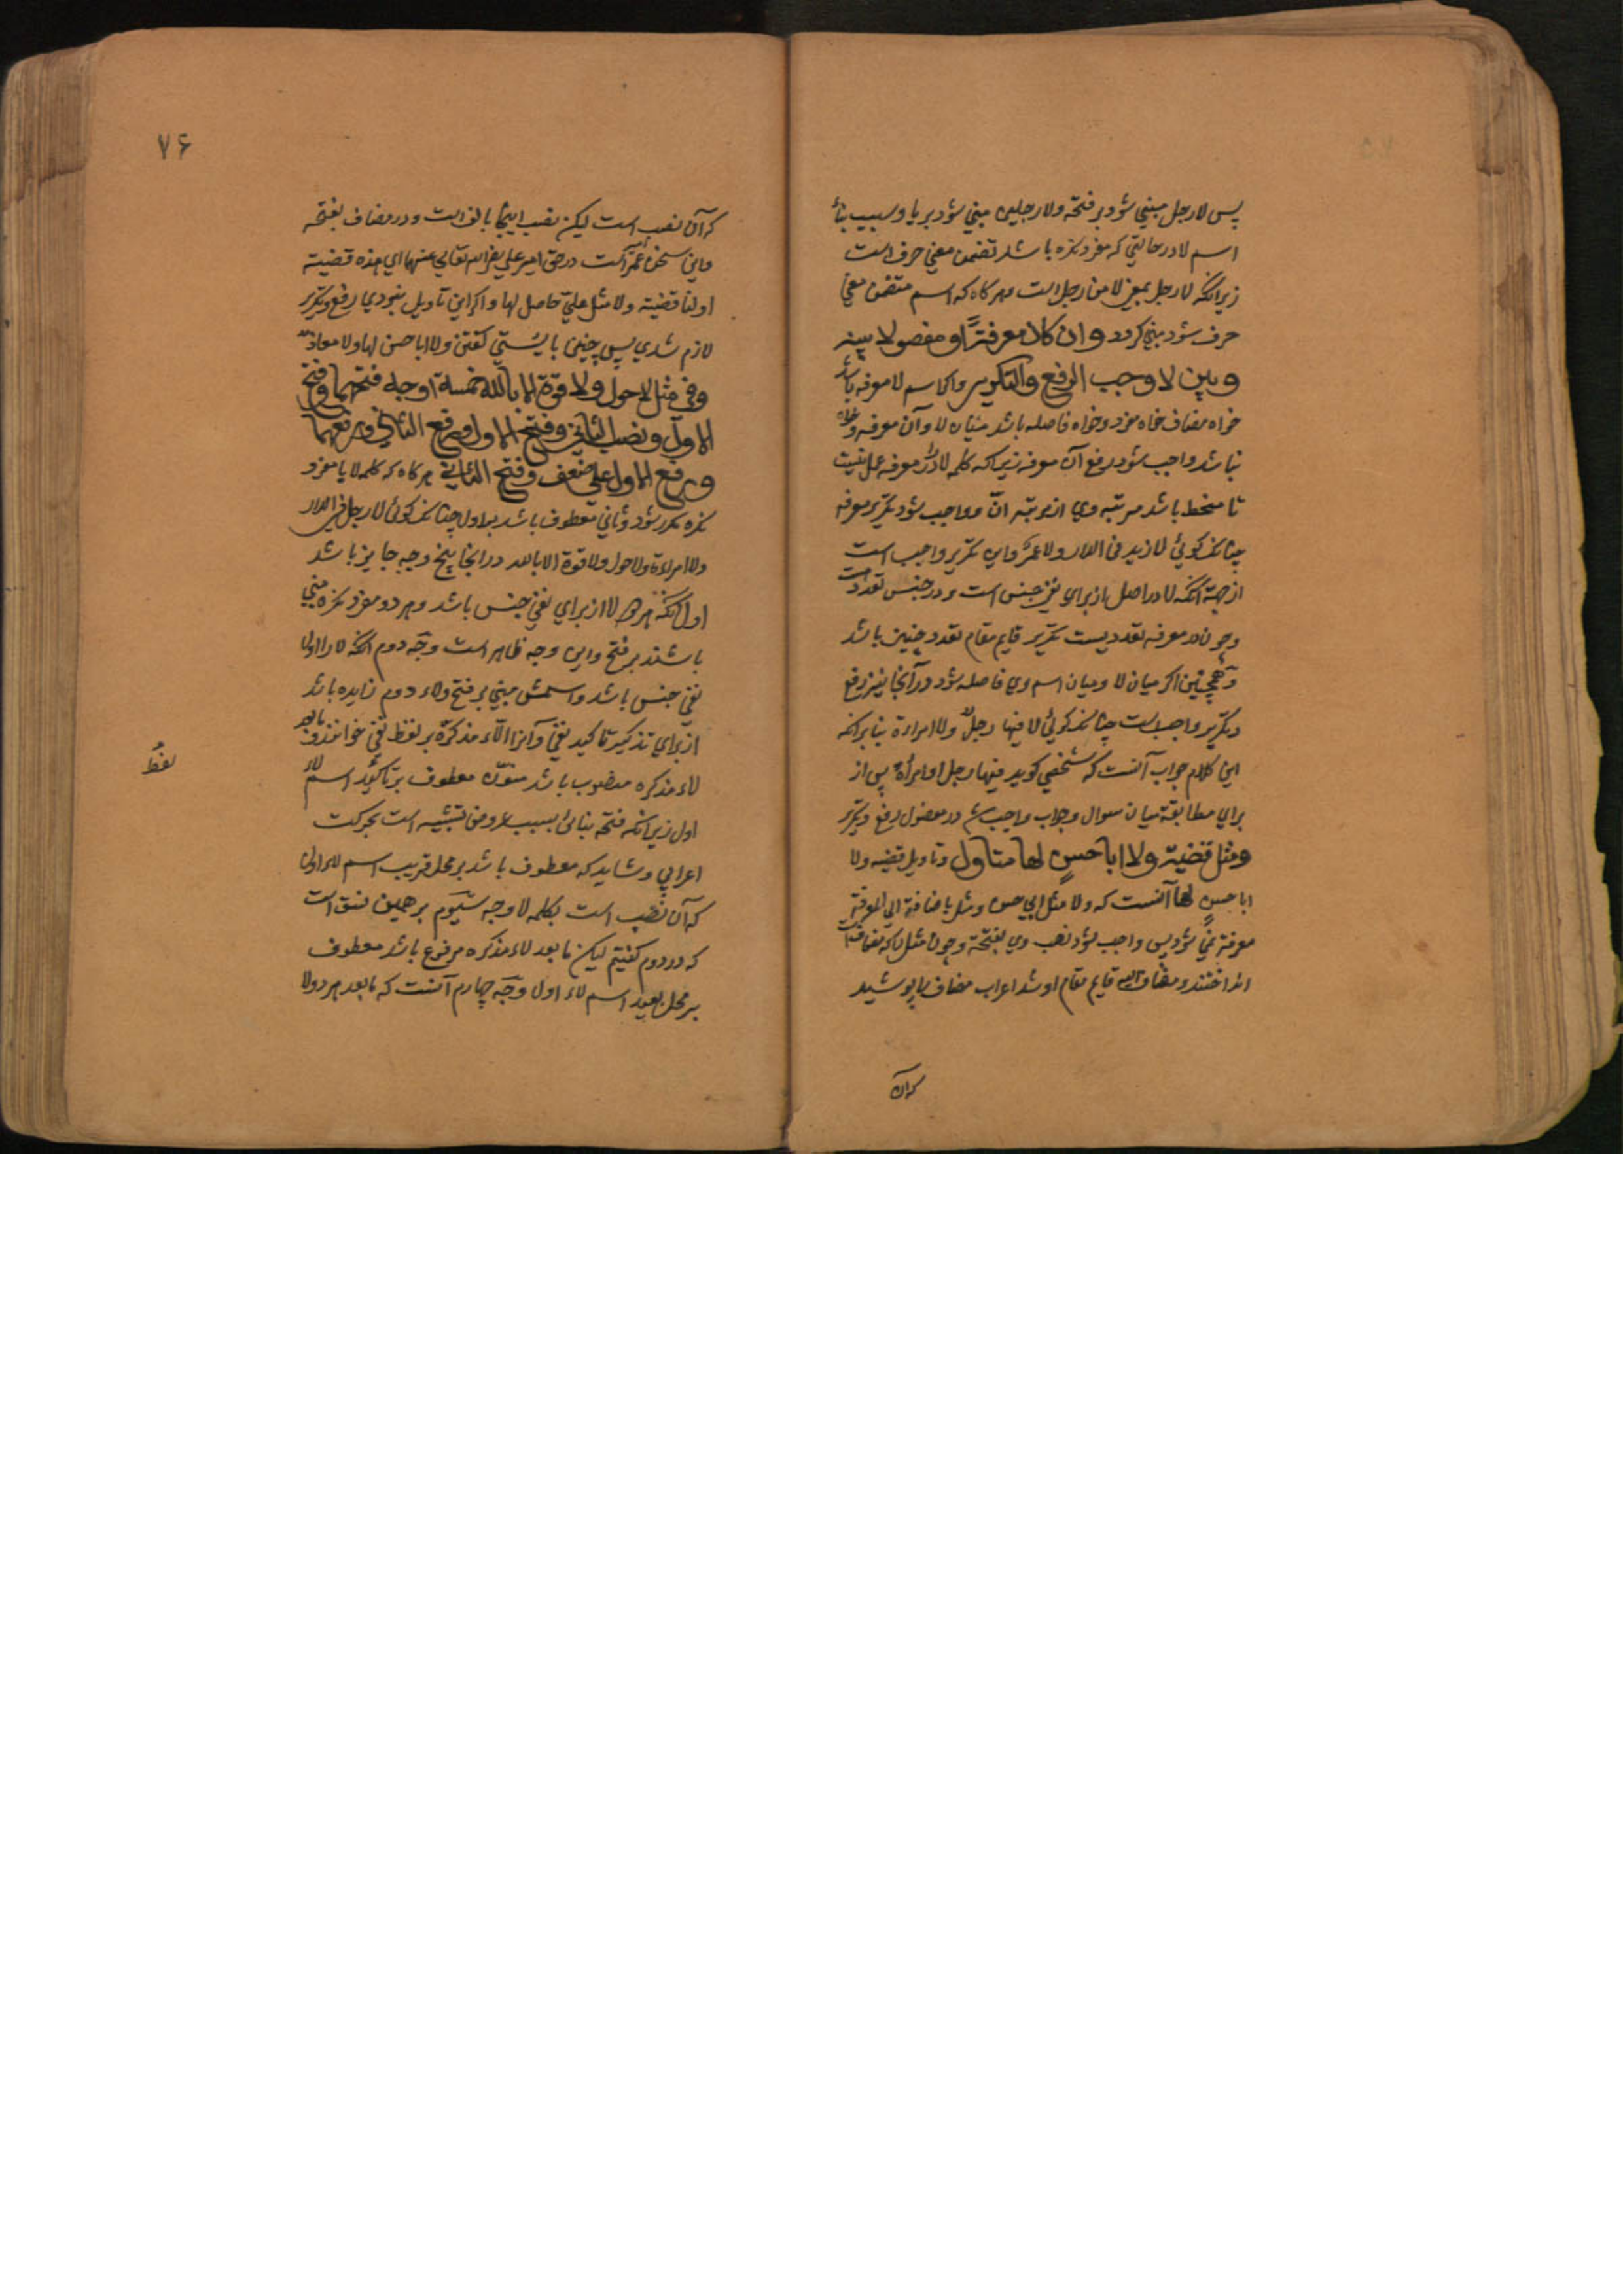 پس لا رجل مبني شود بر فتحه ولا رجلين مبني شود بر يا وسبب بناء
اسم لا در حالتي كه مفرد نكره باشد تضمن معني حرف است
زيرانكه لا رجل بمعني لا من رجل است وهركاه كه اسم متضمن معني
حرف شود مبني كردد وان كان معرفة او مفصولا بينه
وبين لا وجب الرفع والتكرير واكر اسم لا معرفه باشد
خواه مضاف خواه مفرد وخواه فاصله باشد ميان لا وآن معرفه وخواه
نباشد واجب شود رفع آن معرفه زيراكه كلمه لا در معرفه عمل نيست
تا منحط باشد مرتبه وي از مرتبه انّ وواجب شود تكرير معرفه
چنانكه كوئي لا زيد في الدار ولا عمرو واين تكرير واجب است
از جهة آنكه لا در اصل از براي نفي جنس است ودر جنس تعدد است
وچون در معرفه تعدد نيست تكرير قايم مقام تعدد چنين باشد
وهمچنين اكر ميان لا وميان اسم وي فاصله شود در آنجا نيز رفع
وتكرير واجب است چنانكه كوئي لا فيها رجلٌ ولا امراءة بنابرانكه
اين كلام جواب آنست كه شخصي كويد فيها رجل او امرأة پس از
براي مطابقة ميان سوال وجواب واجب شد در مفصول رفع وتكرير
ومثل قضية ولا ابا حسنٍ لها متاول وتاويل قضيه ولا
ابا حسنٍ لها آنست كه ولا مثل ابي حسن ومثل باضافة الي المعرفة
معرفة نمي شود پس واجب شود نصب وي بفتحة وچون مثل را كه مضاف است
انداختند ومضاف اليه قايم مقام او شد اعراب مضاف را پوشيد
كه آن
٧۶
كه آن نصب است ليكن نصب اينجا بالف است ودر مضاف بفتحه
واين سخن عمر است در حق امير علي رضي الله تعالي عنهما اي هذه قضية
او لنا قضية ولا مثل عليّ حاصل لها واكر اين تاويل نبودي رفع وتكرير
لازم شدي پس چنين بايستي كفتن ولا ابا حسن لها ولا معاذ
وفي مثل لا حول ولا قوة الا بالله خمسة اوجه فتحهما وفتح
الاول ونصب الثاني وفتح الاول ورفع الثاني ورفعهما
ورفع الاول علي ضعف وفتح الثاني هركاه كه كلمه لا با مفرد
نكره مكرر شود وثاني معطوف باشد بر اول چنانكه كوئي لا رجل في الدار
ولا امراءة ولا حول ولا قوة الا بالله در انجا پنج وجه جايز باشد
اول آنكه هر دو لا از براي نفي جنس باشد وهر دو مفرد نكره مبني
باشند بر فتح واين وجه ظاهر است وجه دوم آنكه لا را اولا
نفي جنس باشد واسمش مبني بر فتح ولاء دوم زايده باشد
از براي تذكير تاكيد نفي وآنرا لاء مذكرة بر لفظ نفي خوانند وما بعد
لاء مذكره منصوب باشد منوّن معطوف بر تاكيد اسم لاء
لفظ
اول زيرانكه فتحه بنائي بسبب عروض تشبيه است بحركت
اعرابي وشايد كه معطوف باشد بر محل قريب اسم لاء اولي
كه آن نصب است بكلمه لا وجه سيوم بر همين نسق است
كه در دوم كفتيم ليكن ما بعد لاء مذكره مرفوع باشد معطوف
بر محل بعيد اسم لاء اول وجه چهارم آنست كه ما بعد هر دو لا